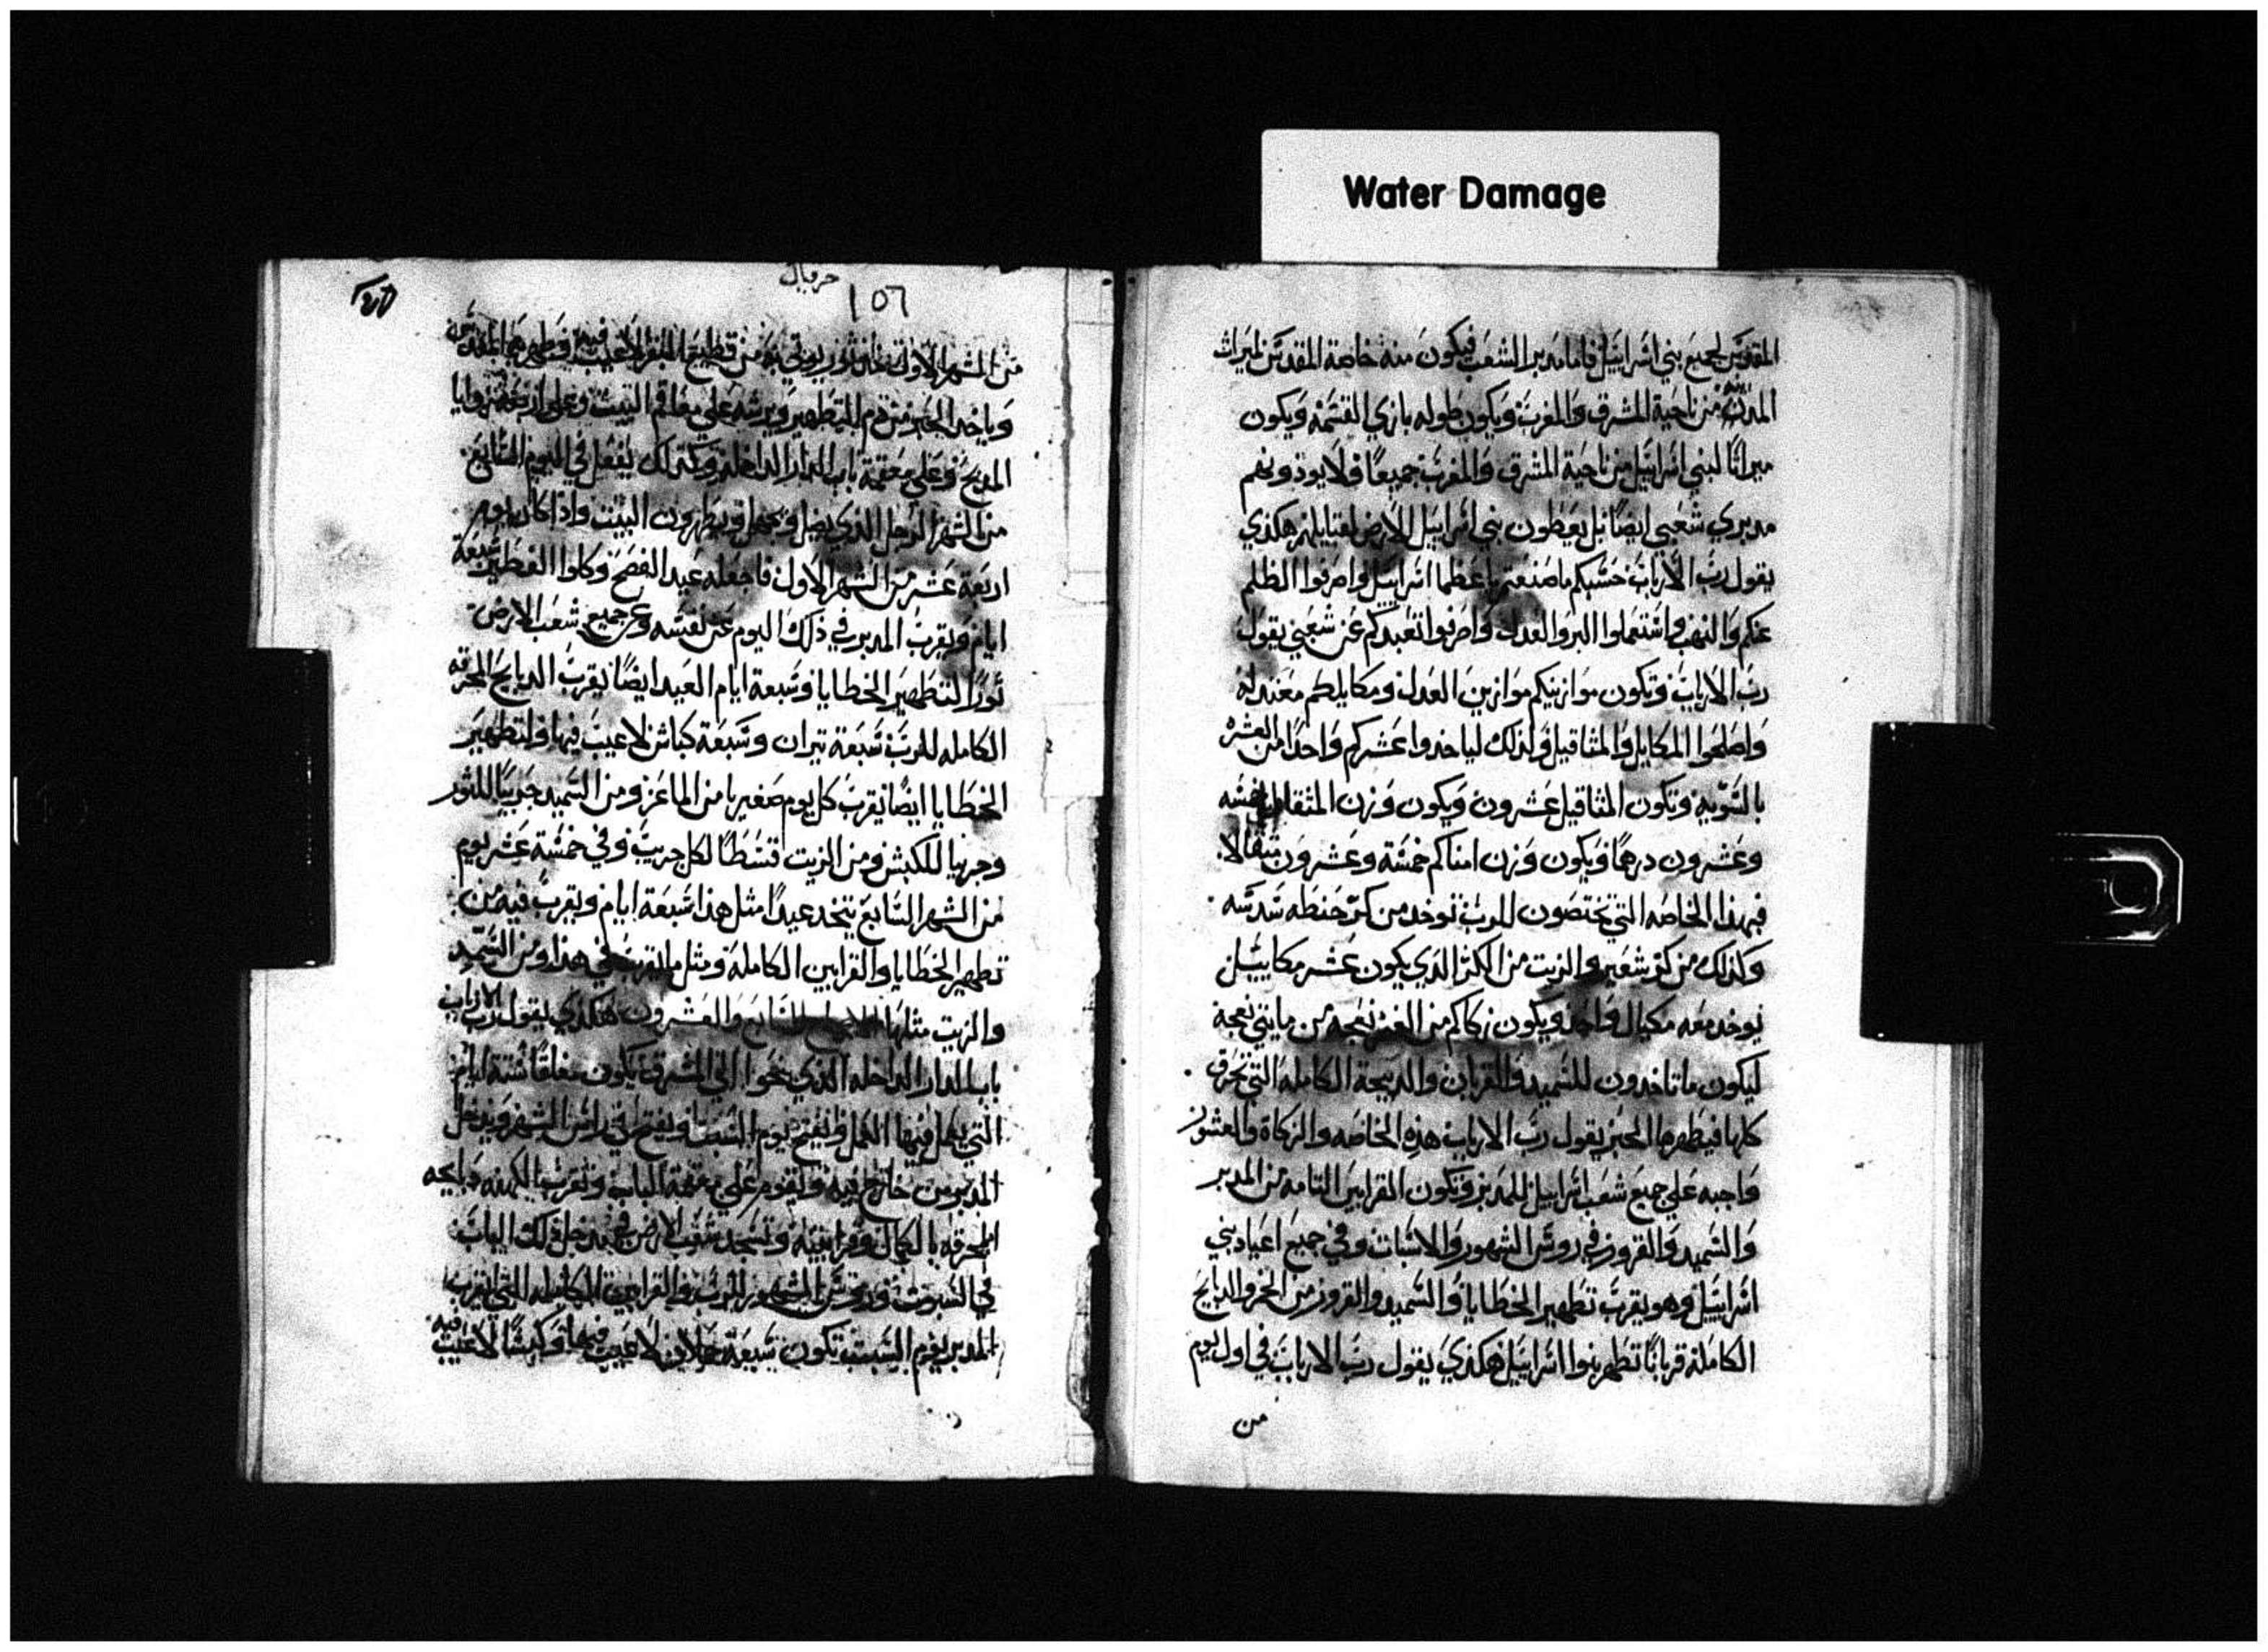 Water Damage
المقدس لجميع بني اسراييل فاما مدبر الشعب فيكون منه خاصة المقدس لميراث
المدن من ناحية المشرق والمغرب ويكون طوله بازي القسمه ويكون
ميراثا لبني اسراييل من ناحية المشرق والمغرب جميعا ولا يوذونهم
مدبري شعبي ايضا بل يعطون بني اسراييل الارض لقبايلهم هكذي
يقول رب الارباب حسبكم ما صنعتم يا عظما اسراييل واصرفوا الظلم
عنكم والنهب واستعملوا البر والعدل واصرفوا تعبدكم عن شعبي يقول
رب الارباب وتكون موازينكم موازين العدل ومكاييلكم معتدله
واصلحوا المكاييل والمثاقيل ولذلك لياخدوا عشركم واحدا من العشر
بالسويه وتكون المثاقيل عشرون ويكون وزن المثقال خمسه
وعشرون درهما ويكون وزن امناكم خمسة وعشرون مثقالا
فهذا الخاصه التي تختصون للرب توخد من كر حنطه سدسه
وكذلك من كر شعير والزيت من الكر الذي يكون عشر مكاييل
توخد معه مكيال واحد ويكون زكاكم من الغنم نعجه من مايتي نعجة
ليكون ما تاخدون للسميد والقربان والدبيحة الكامله التي تحرق
كلها فيطهرها الحبر يقول رب الارباب هذه الخاصه والزكاة والعشور
واجبه علي جميع شعب اسراييل للمدبر وتكون القرابين التامه من المدبر
والسميد والقرور في روس الشهور والاسبات وفي جميع اعياد بني
اسراييل وهو يقرب تطهير الخطايا والسميد والقرور من الخمر والدبايح
الكاملة قربانا تطهر بنوا اسراييل هكذي يقول رب الارباب في اول يوم
من
حزقيال
١٥٦
من الشهر الاول تخد ثور يوتي به من قطيع البقر لا عيب فيه فيطهر
وياخد الحبر من دم التطهير ويرشه علي معاقم البيت وعلي اربعة زوايا
المدبح وعلي معقمة باب الدار الداخلة وكذلك يفعل في اليوم السابع
من الشهر الرجل الذي يضل ويجهل ويطهرون البيت واذا كان يوم
اربعة عشر من الشهر الاول فاجعله عيد الفصح وكلوا الفطير سبعة
ايام ويقرب المدبر في ذلك اليوم عن نفسه وعن جميع شعب الارض
ثورا لتطهير الخطايا وسبعة ايام العيد ايضا يقرب الدبايح المحرقه
الكامله للرب سبعة تيران وسبعة كباش لا عيب فيها ولتطهير
الخطايا ايضا يقرب كل يوم صغيرا من الماعز ومن السميد جريبا للثور
وجريبا للكبش ومن الزيت قسطا لكل جريب وفي خمسة عشر يوم
من الشهر السابع يتخد عيدا مثل هذا سبعة ايام ويقرب فيه من
تطهير الخطايا والقرابين الكاملة ومثل ما يقرب في هذا ومن السميد
والزيت مثلها والعشرون هكذي يقول رب الارباب
باب الدار الداخله الذي نحوا الي المشرق يكون مغلقا ستة ايام
التي يعمل فيها العمل ويفتح يوم السبت ويفتح في راس الشهر ويدخل
المدبر من خارج فيه ويقوم علي معقمة الباب وتقرب الكهنه دبايحه
المحرقة بالكمال وقرابينه وتسجد شعب الارض في مدخل ذلك الباب
في السبوت وروس الشهور للرب والقرابين الكامله التي يقرب
المدبر يوم السبت تكون سبعة حملان لا عيب فيها وكبشا لا عيب فيه